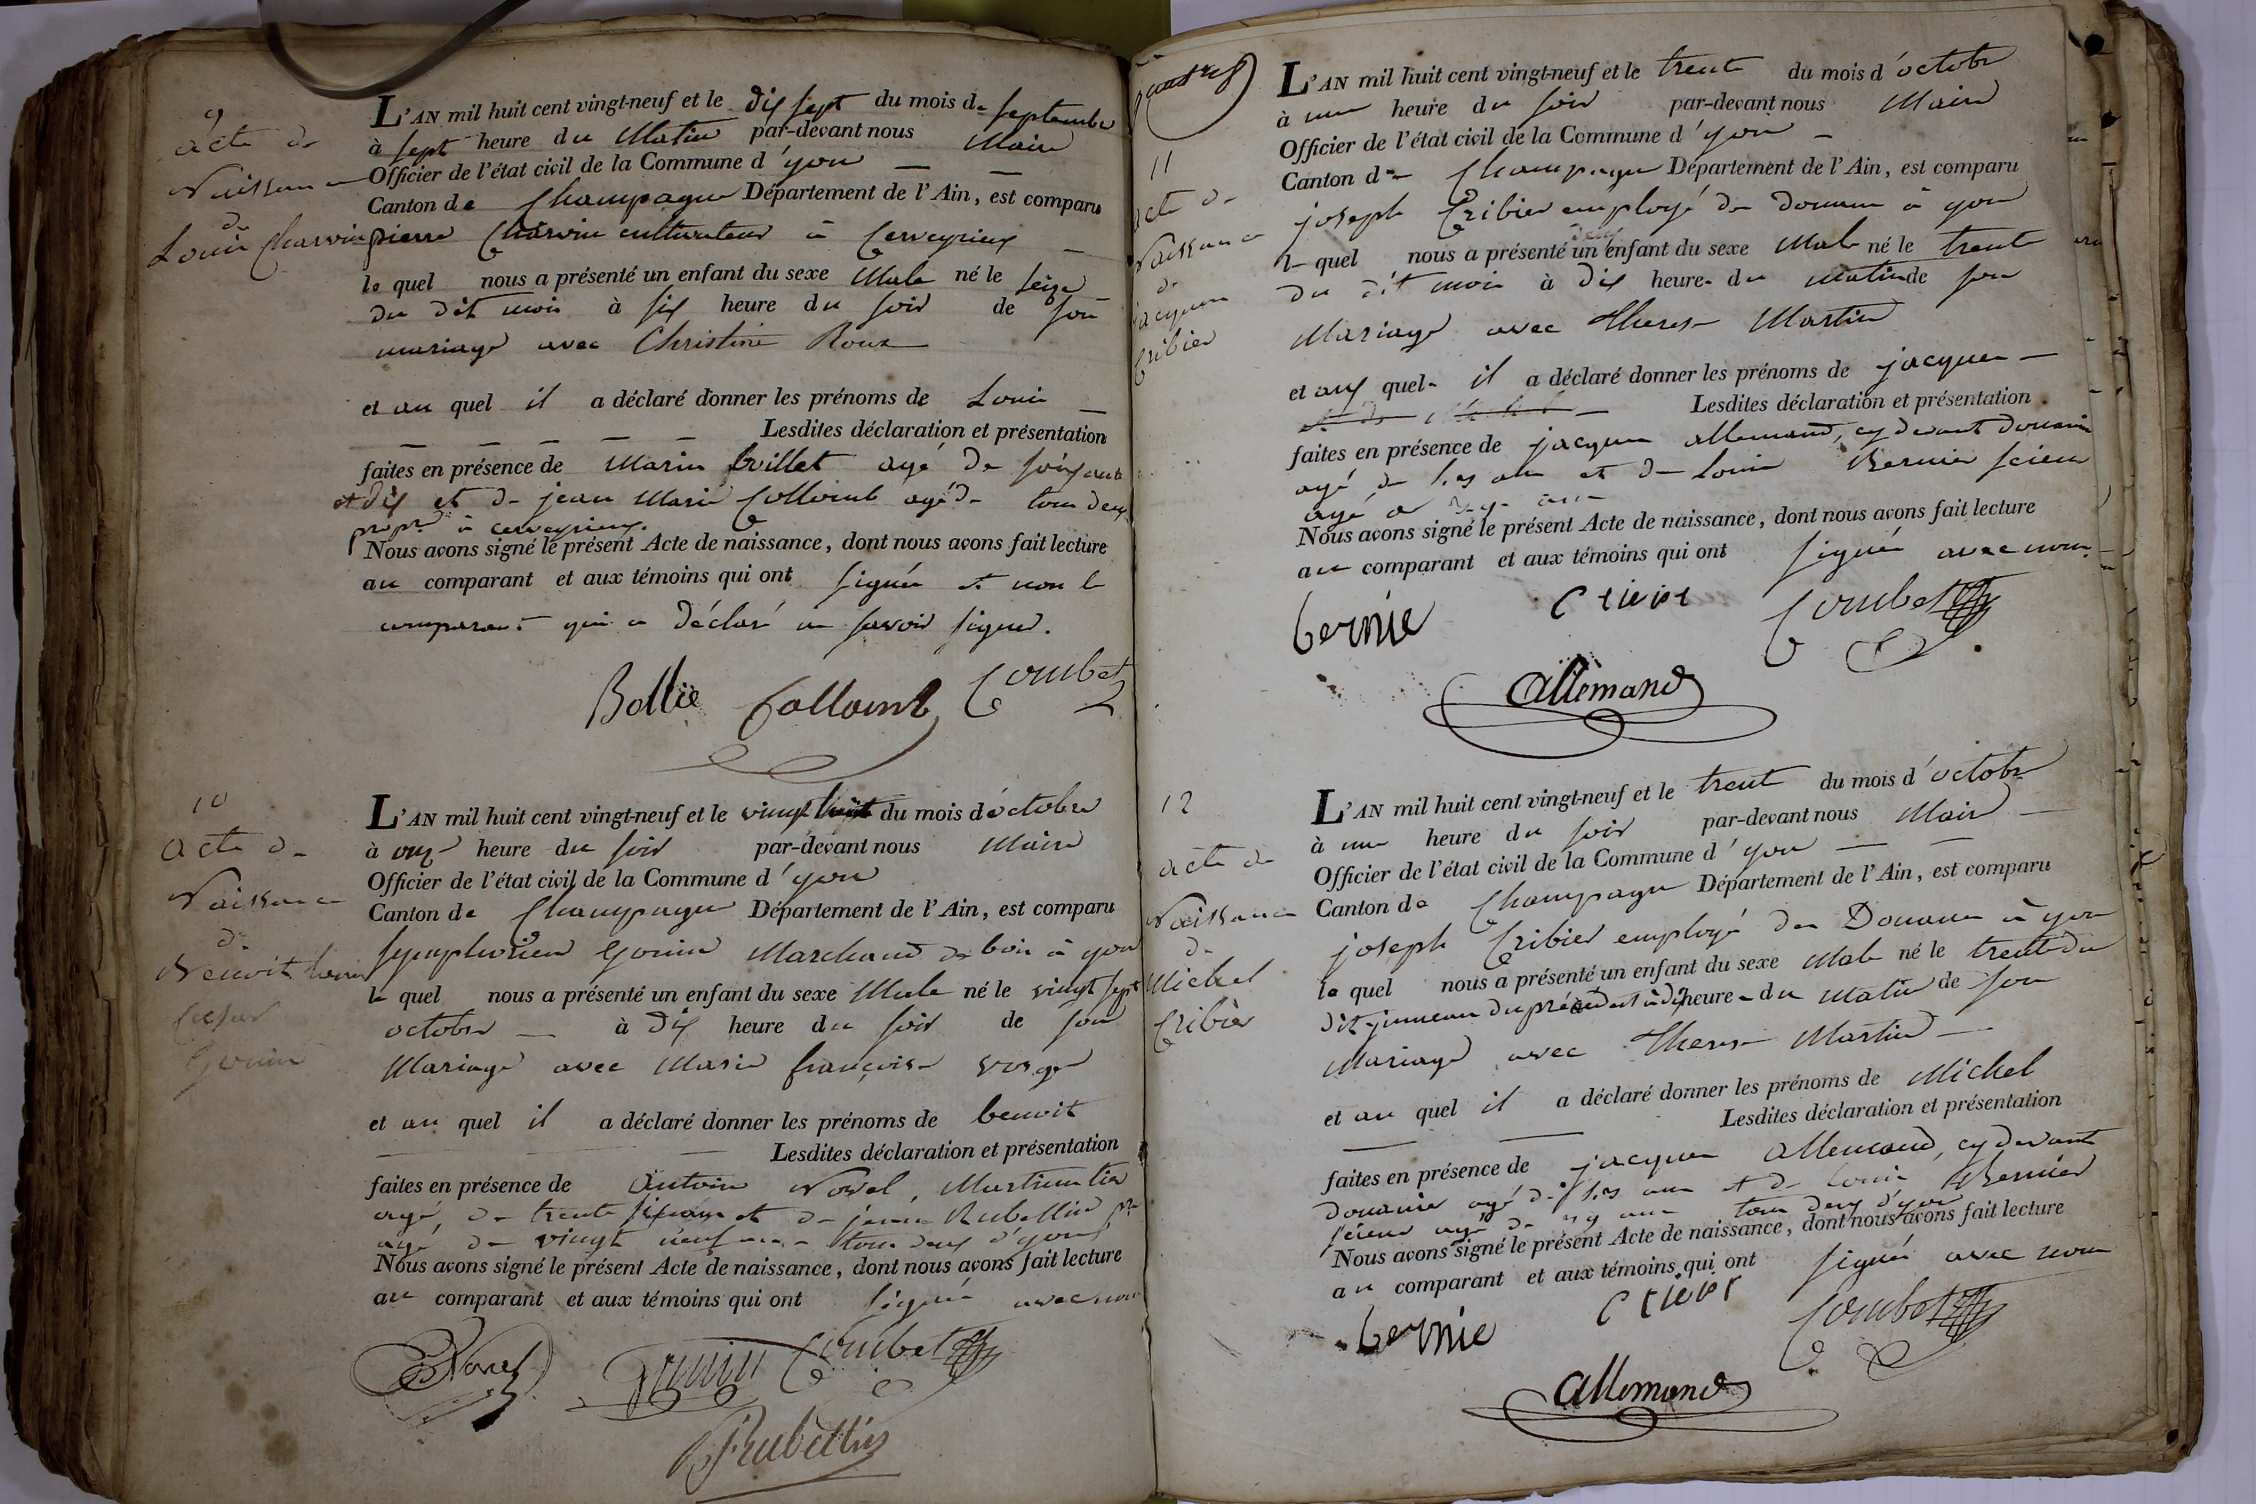 9
acte de
Naissance
de
Louis Charvin
L'AN mil huit cent vingt-neuf et le dix sept du mois de septembre
à sept heure du Matin par-devant nous Maire
Officier de l'état civil de la Commune d'yon
Canton de Champagne Département de l'Ain, est comparu
pierre Charvin cultivateur à Cerveyrieux
le quel nous a présenté un enfant du sexe Male né le seize
du dit mois à six heure du soir de son
mariage avec Christine Roux
et au quel il a déclaré donner les prénoms de Louis
Lesdites déclaration et présentation
faites en présence de Marin bollet agé de soixante
et dix et de jean Marie Colloint agé de tous deux
propre à cerveyrieux.
Nous avons signé le présent Acte de naissance, dont nous avons fait lecture
au comparant et aux témoins qui ont signés et non le
comparant qui a déclaré ne savoir signer.
Bollie Colloint Combet
10
acte de
Naissance
de
Benoit
Gonin
L'AN mil huit cent vingt-neuf et le vingt huit du mois d'octobre
à onze heure du soir par-devant nous Maire
Officier de l'état civil de la Commune d'yon
Canton de Champagne Département de l'Ain, est comparu
symphorien Gonin Marchand de bois à yon
le quel nous a présenté un enfant du sexe Male né le vingt sept
octobre à dix heure du soir de son
Mariage avec Marie françoise
et au quel il a déclaré donner les prénoms de benoit
Lesdites déclaration et présentation
faites en présence de Antoine Novel,
agé, de trente et de Rubellin
agé de vingt neuf ans tous deux d'yon
Nous avons signé le présent Acte de naissance, dont nous avons fait lecture
au comparant et aux témoins qui ont signés avec nous
Novel Gonin Combet
Rubellin
11
acte de
Naissance
de
jacques
Cribier
L'AN mil huit cent vingt-neuf et le trente du mois d'octobre
à une heure du soir par-devant nous Maire
Officier de l'état civil de la Commune d'yon
Canton de Champagne Département de l'Ain, est comparu
joseph Cribier employé de douane à yon
le quel nous a présenté un enfant du sexe Male né le trente
du dit mois à dix heure du matin de son
Mariage avec Therese Martin
et aux quel il a déclaré donner les prénoms de jacques
Lesdites déclaration et présentation
faites en présence de jacques allemand, cy devant douanier
agé de ans et de Louis Bernier scieur
agé de ans
Nous avons signé le présent Acte de naissance, dont nous avons fait lecture
au comparant et aux témoins qui ont signés avec nous
bernie Combet
allemand
12
acte de
Naissance
de
Michel
Cribier
L'AN mil huit cent vingt-neuf et le trente du mois d'octobre
à une heure du soir par-devant nous Maire
Officier de l'état civil de la Commune d'yon
Canton de Champagne Département de l'Ain, est comparu
joseph Cribier employé des Douanes à yon
le quel nous a présenté un enfant du sexe Male né le trente du
dit jumeau du précédent à dix heure du Matin de son
Mariage avec Therese Martin
et au quel il a déclaré donner les prénoms de Michel
Lesdites déclaration et présentation
faites en présence de jacques allemand, cy devant
douanier agé de ans et de Louis Bernier
scieur agé de ans tous deux d'yon
Nous avons signé le présent Acte de naissance, dont nous avons fait lecture
au comparant et aux témoins qui ont signés avec nous
bernie Combet
allemand